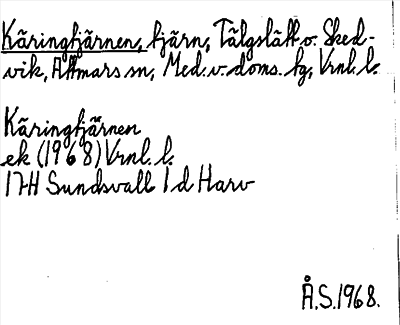 Käringtjärnen, tjärn, Tälgslätt o. Sked-
vik, Attmars sn, Med. v. doms. tg, Vrnl. l.
Käringtjärnen
ek (1968) Vrnl. l.
17H Sundsvall 1 d Harv
Å.S.1968.